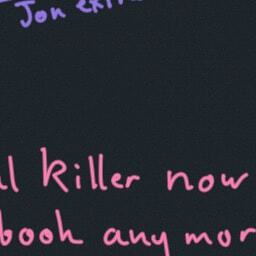 Jon extr
l killer now
book any mor